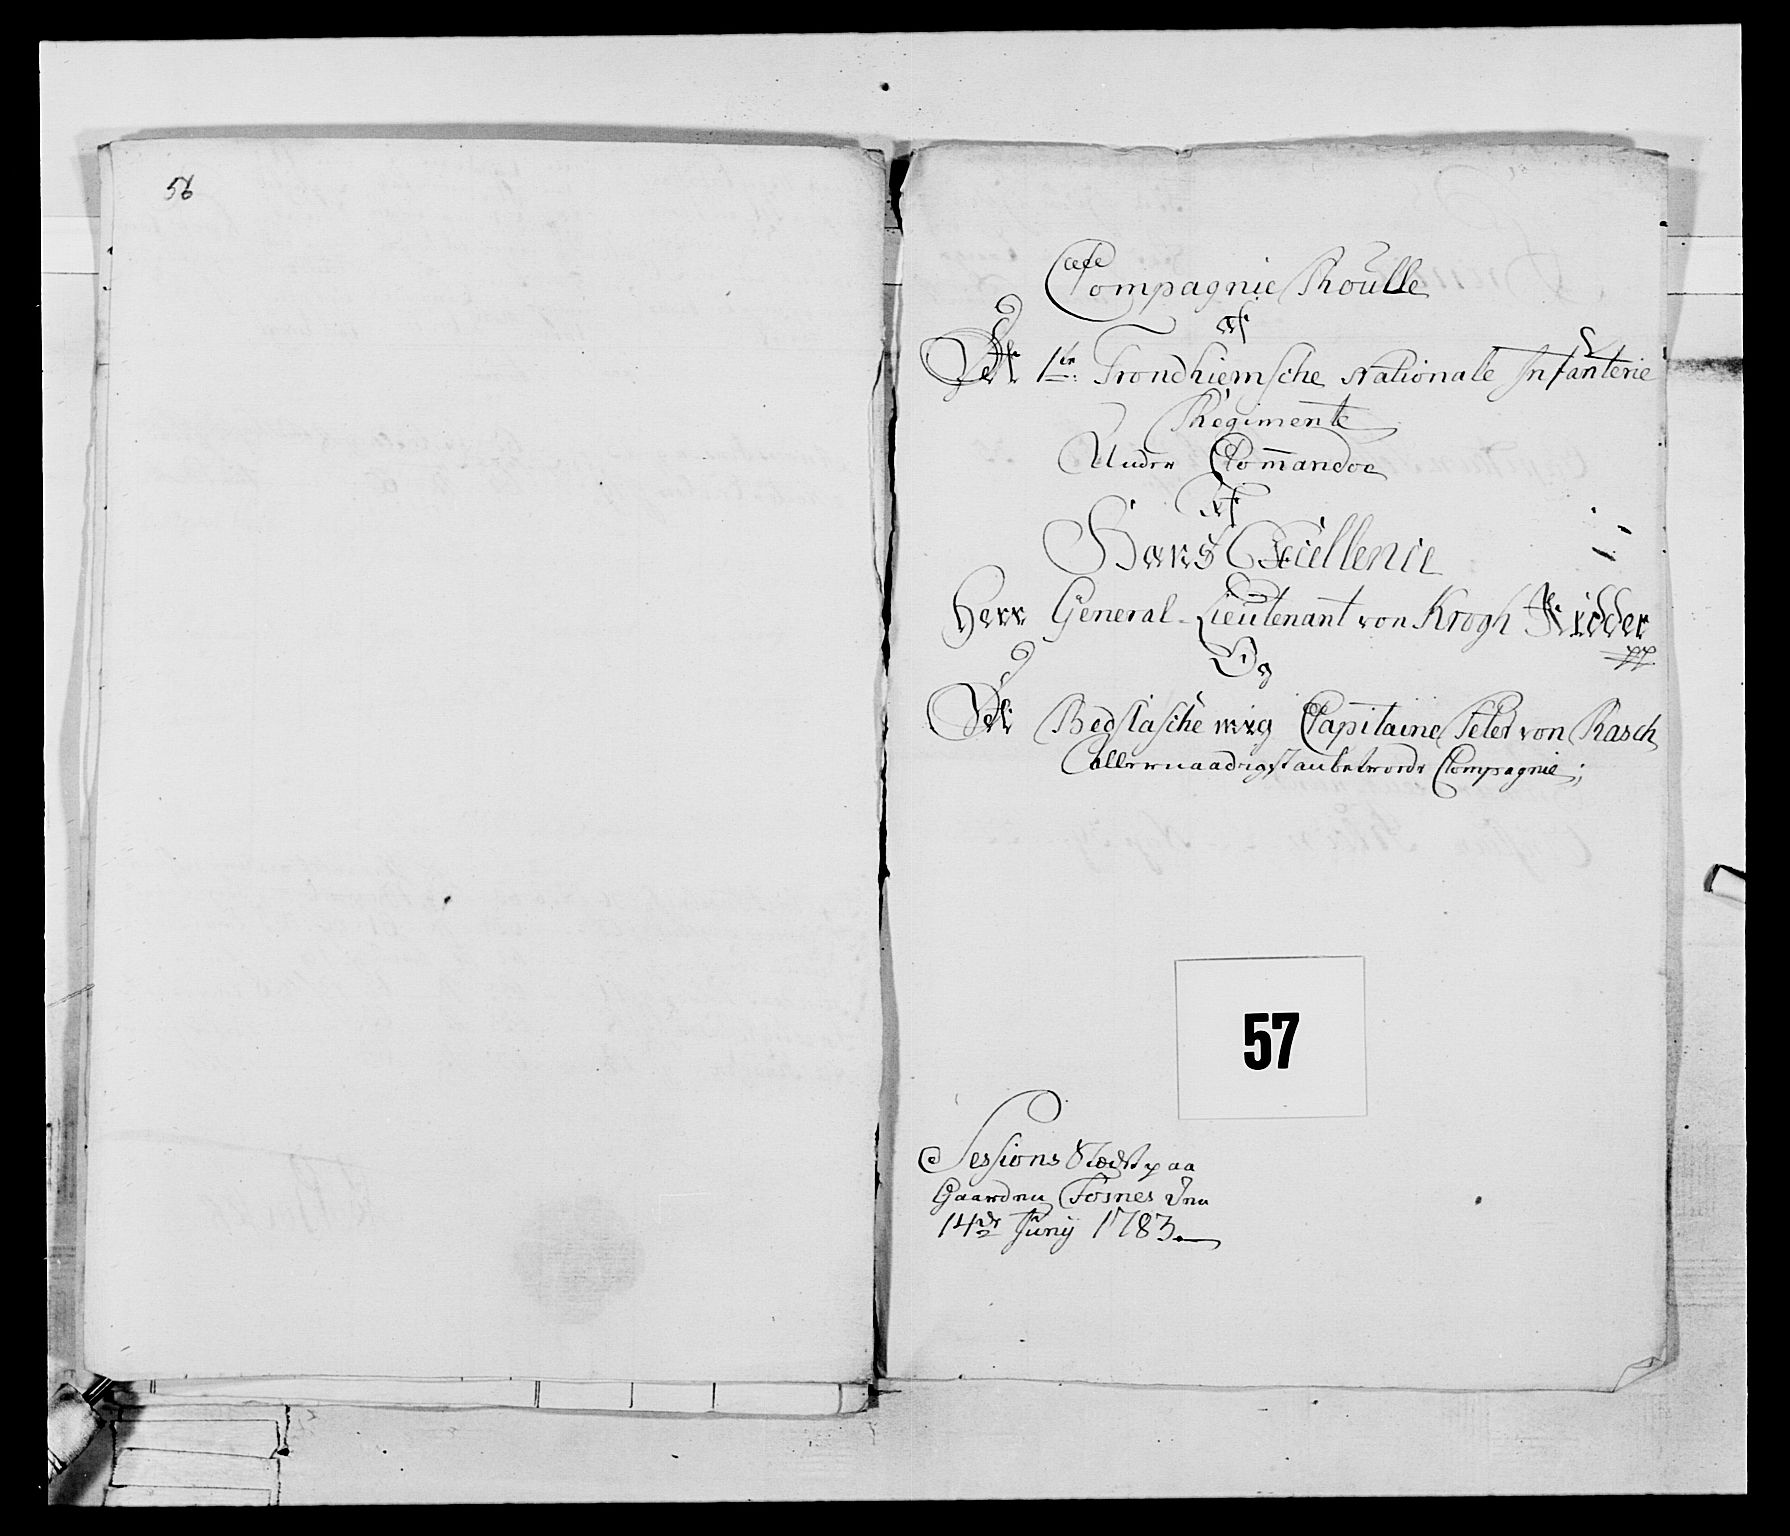 56
Compagnie Roulle
af
Det 1te Trondhiemsche Nationale Infanterie
Regimente
Under Commandoe
Af
Hans Excellence
Herr General-Lieutenant von Krogh Ridder
pp
Og
Det Bedslasche mig Capitaine Peter von Rasch
allernaadigst anbetroede Compagnie;
57
Sessions Stædet paa
Gaarden Fosnes Den
14de Junij 1783.